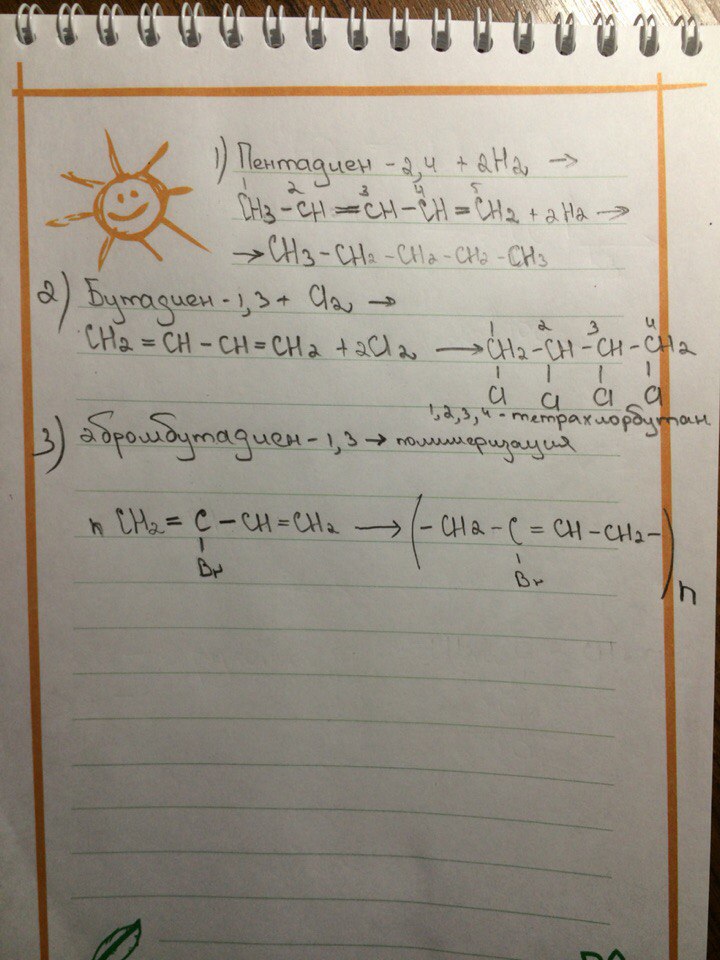 1) Пентадиен - 2,4 + 2H2 →
1 2 3 4 5
CH3 - CH = CH - CH = CH2 + 2H2 →
→ CH3 - CH2 - CH2 - CH2 - CH3
2) Бутадиен - 1,3 + Cl2 →
1 2 3 4
CH2 = CH - CH = CH2 + 2Cl2 → CH2 - CH - CH - CH2
Cl Cl Cl Cl
1,2,3,4 - тетрахлорбутан
3) 2бромбутадиен - 1,3 → полимеризация
n CH2 = C - CH = CH2 → (- CH2 - C = CH - CH2 -)n
Br Br